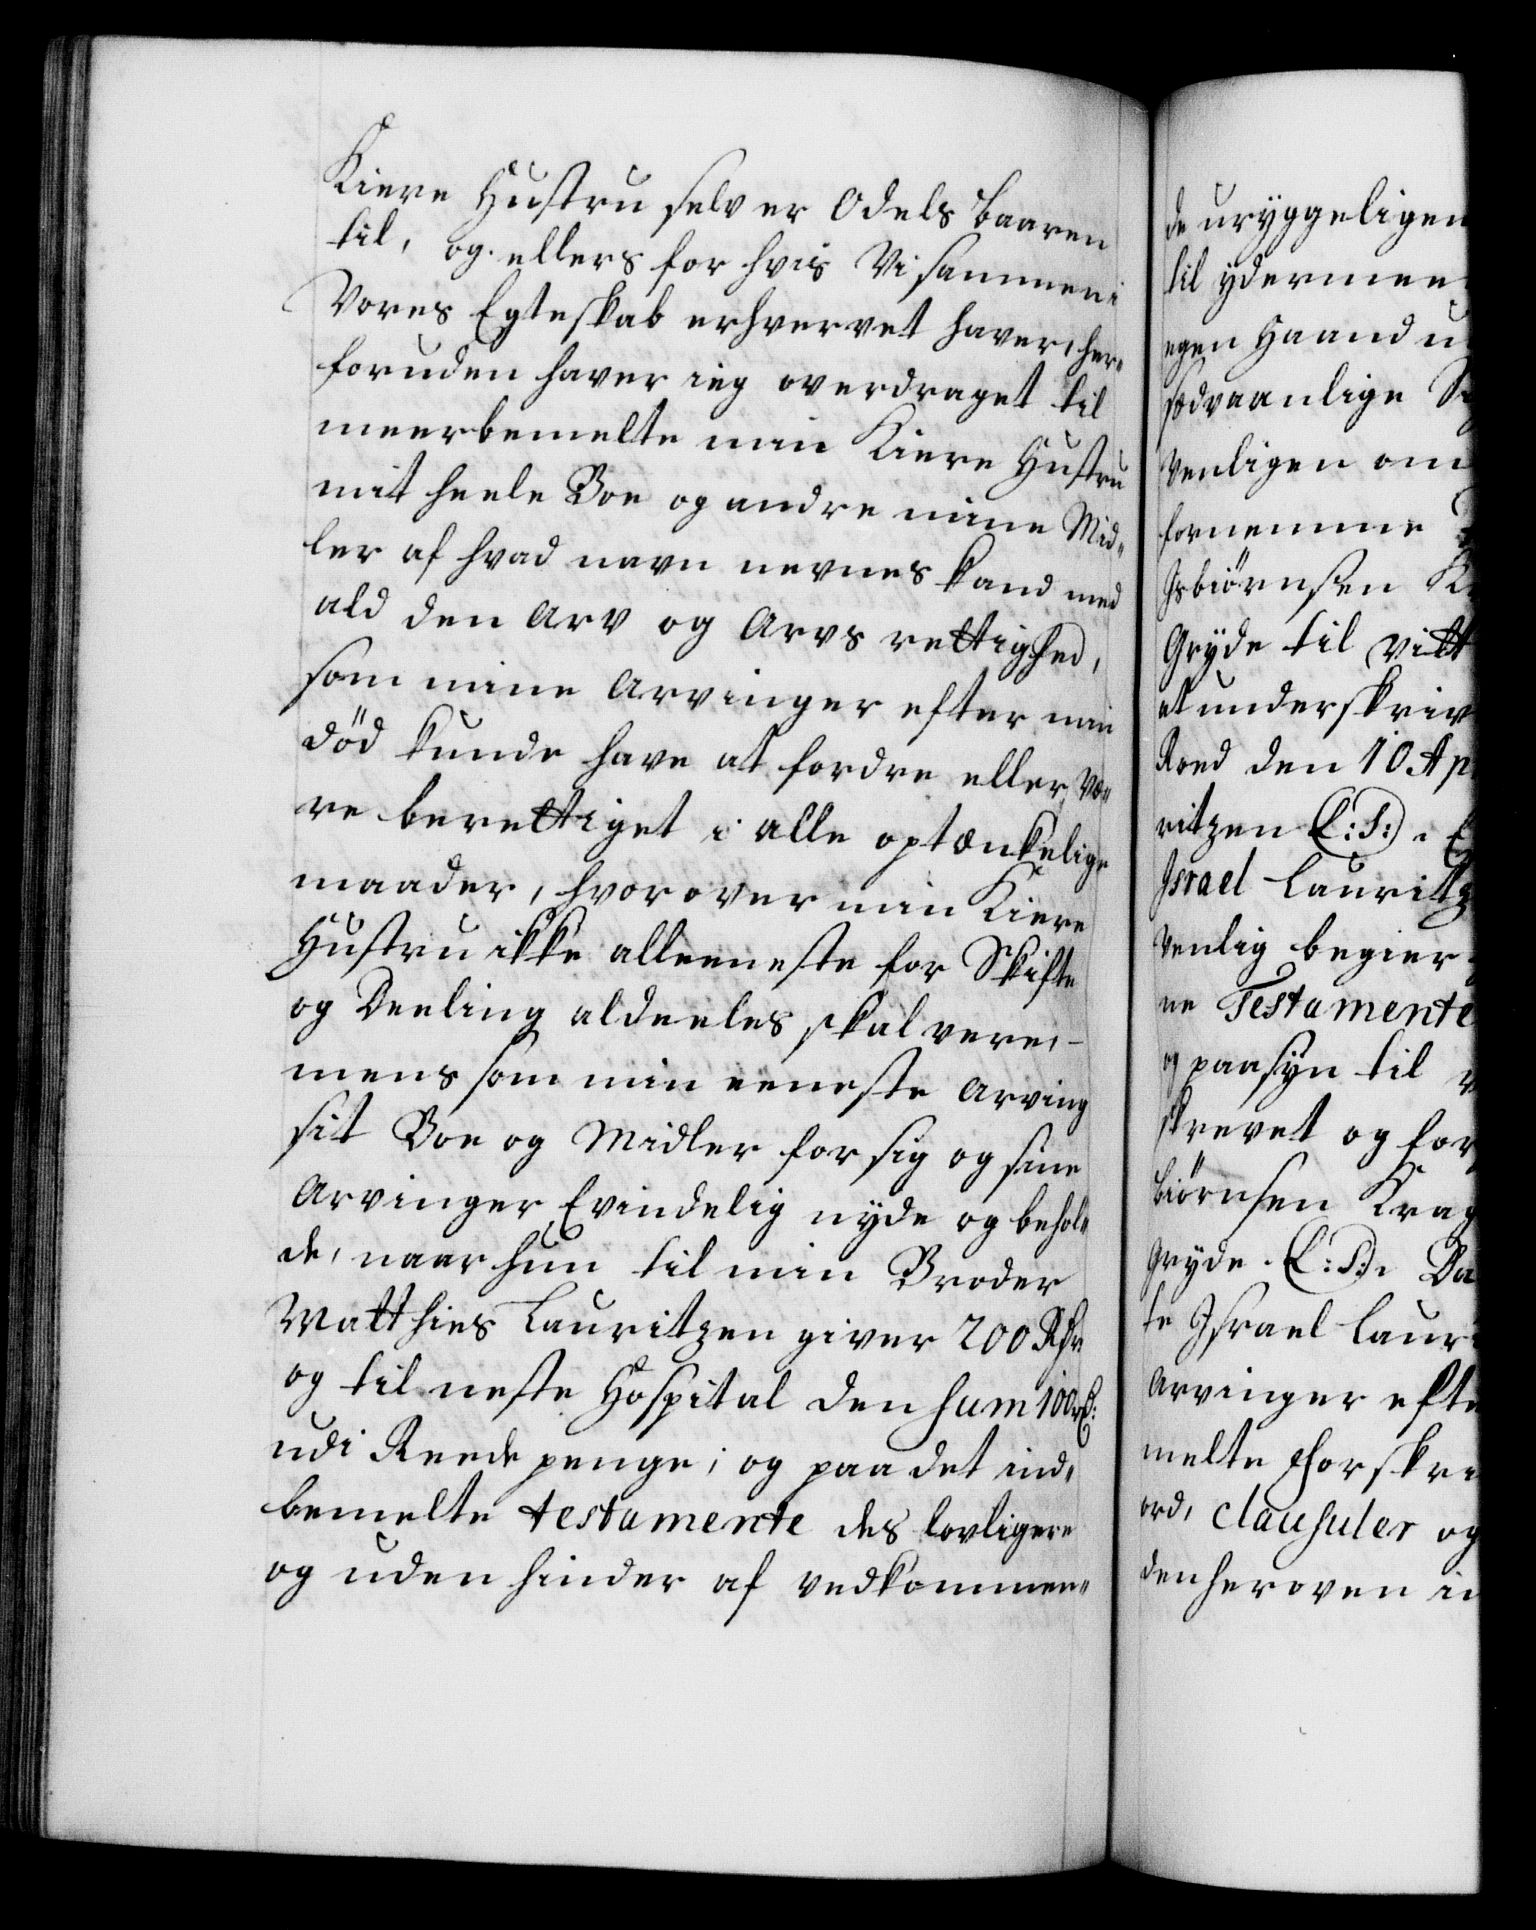 Kiere Hustru selv er Odels baaren
til, og ellers for hvis Vi sammen i
Vores Egteskab erhvervet haver, her¬
foruden haver ieg overdraget til
meerbemelte min Kiere Hustru
mit heele Boe og andre mine Mid¬
ler af hvad navn nevnes kand med
ald den Arv og Arvs rettighed,
som mine Arvinger efter min
död kunde have at fordre eller væ¬
re berettiget i alle optænkelige
maader, hvorover min Kiere
Hustru ikke alleeneste for Skifte
og Deeling aldeeles skal vere,
mens som min eeneste Arving
sit Boe og Midler for sig og sine
Arvinger Evindelig nyde og behol¬
de, naar hun til min Broder
Matthies Lauritzen giver 200 Rdr
og til neste Hospital den Sum 100 rd:
udi Reede penge; og paa det ind¬
bemelte testamente des lovligere
og uden hinder af vedkommen¬
de uryggeligen
til ydermeer
egen Haand u
sædvaanlige Si
venligen om
fornemme
Isbiörnsen Kr
Gryde til vitt
at underskriv
Roed den 10 Ap
ritzen (L:S:)
Israel Lauritz
venlig begier
ne Testamente
og paasyn til
skrevet og for
biörnsen Krag
Gryde. (L:S:) Da
te Israel Lauri
Arvinger efte
melte Forskre
ord, Clausuler og
den heroven in